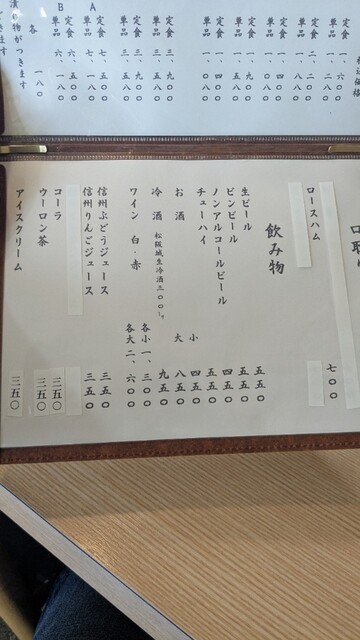 定食 一、六〇〇
単品 一、二〇〇
定食 二、二〇〇
定食 一、四〇〇
単品 一、〇八〇
定食 三、九〇〇
単品 三、五八〇
A 定食 七、五〇〇
単品 七、一八〇
B 定食 六、五〇〇
単品 六、一八〇
各 一八〇
漬り物がつきます
ロースハム 七〇〇
飲み物
生ビール 五五〇
ビンビール 五五〇
ノンアルコールビール 四五〇
チューハイ 五五〇
お酒 小 四五〇
大 八五〇
冷酒 松阪城生冷酒三〇〇 九五〇
ワイン 白・赤 各小一、三〇〇
各大二、六〇〇
信州ぶどうジュース 三五〇
信州りんごジュース 三五〇
コーラ 三五〇
ウーロン茶 三五〇
アイスクリーム 三五〇